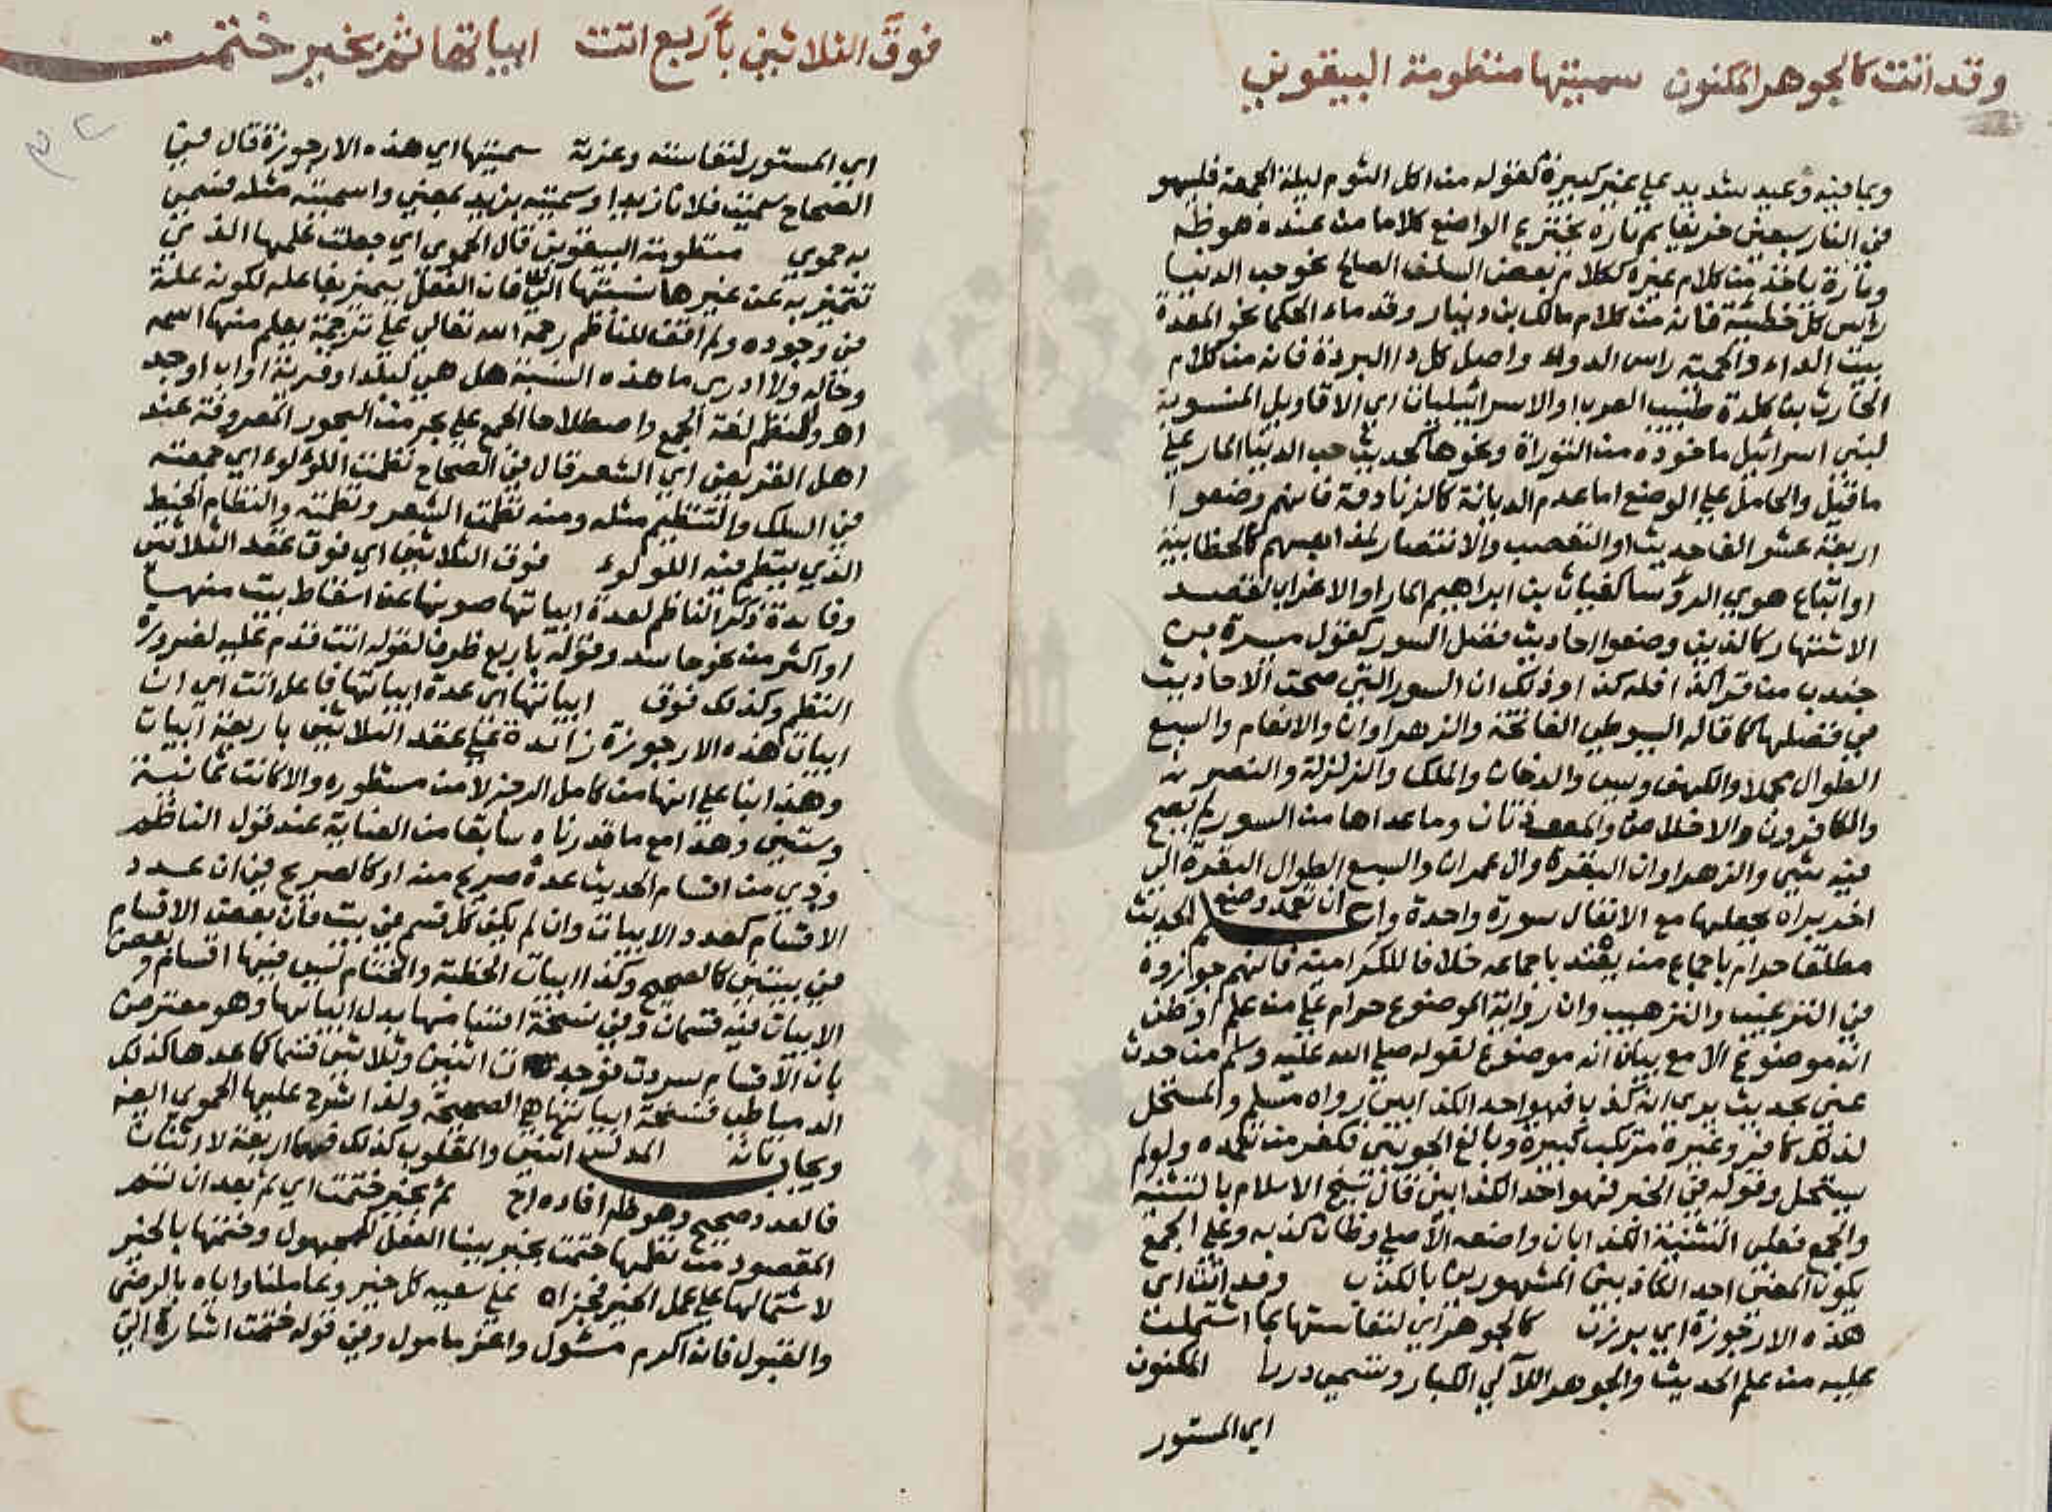 وقد اتت كالجوهر المكنون سميتها منظومة البيقوني
وبما فيه وعيد شديد علي غير كبيرة كقوله من اكل الثوم ليلة الجمعة فليهو
في النار سبعين خريفا ثم تارة يخترع الواضع كلاما من عنده هو ظم
وتارة ياخذ من كلام غيره ككلام بعض السلف الصالح نحو حب الدنيا
راس كل خطيئة فانه من كلام مالك بن دينار وقدماء الحكما نحو المعدة
بيت الداء والحمية راس الدواء واصل كل داا البردة فانه من كلام
الحارث بن كلدة طبيب العرب او الاسرائيليات اي الاقاويل المنسوبة
لبني اسرائيل ماخوذه من التوراة ونحوها كحديث حب الدنيا المار علي
ما قيل والحامل علي الوضع اما عدم الديانة كالزنادقة فانهم وضعوا
اربعة عشر الف حديث او التعصب والانتصار لمذاهبهم كالخطابية
او اتباع هوي الروسا كغياث بن ابراهيم المار او الاغراب لقصد
الاشتهار كالذين وضعوا احاديث فضل السور كقول ميسرة بن
جندب من قرا كذا فله كذا وذلك ان السور التي صحت الاحاديث
في فضلها كما قاله السيوطي الفاتحة والزهراوان والانعام والسبع
الطوال مجملا والكهف ويس والدخان والملك والزلزلة والنصر
والكافرون والاخلاص والمعوذتان وما عداها من السور لم يصح
فيه شيي والزهراوان البقرة وال عمران والسبع الطوال البقرة الي
اخر براه بجعلها مع الانفال سورة واحدة واعلم ان تعمد وضع الحديث
مطلقا حرام باجماع من يعتد باجماعه خلافا للكرامية فانهم جوازوه
في الترغيب والترهيب وان رواية الموضوع حرام علي من علم او ظن
انه موضوع الا مع بيان انه موضوع لقوله صلي الله عليه وسلم من حدث
عني بحديث يري انه كذب فهو احد الكذابين رواه مسلم والمستحل
لذلك كافر وغيره مرتكب كبيرة وبالغ الجويني فكفر من تعمده ولو لم
يستحل وقوله في الخبر فهو احد الكذابين قال شيخ الاسلام بالتثنية
والجمع فعلي التثنية الكذابان واضعه الاصلي وظان كذبه وعلي الجمع
يكون المعني احد الكاذبين المشهورين بالكذب وقد اتت اي
هذه الارجوزة اي برزت كالجوهر اي لنفاستها بما اشتملت
عليه من علم الحديث والجوهر اللآلي الكبار وتسمي دررا المكنون
اي المستور
فوق الثلاثين بأربع اتت ابياتها ثم بخير ختمت
اي المستور لنفاسته وعزته سميتها اي هذه الارجوزة قال في
الصحاح سميت فلانا زيدا وسميته بزيد بمعني واسميته مثله فتسمي
به حموي منظومة البيقوني قال الحموي اي جعلت علمها الذي
تتميز به عن غيرها نسبتها الي فان الفعل يميز بفاعله لكونه علة
في وجوده ولم اقف للناظم رحمه الله تعالي علي ترجمة يعلم منها اسمه
وحاله ولا ادري ما هذه النسبة هل هي لبلد او قرية او اب او جد
اهـ والنظم لغة الجمع واصطلاحا الجمع علي بحر من البحور المعروفة عند
اهل القريض اي الشعر قال في الصحاح نظمت اللولو اي جمعته
في السلك والتنظيم مثله ومنه نظمت الشعر ونظمته والنظام الخيط
الذي ينظم فيه اللولو فوق الثلاثين اي فوق عقد الثلاثين
وفايدة ذكر الناظم لعدة ابياتها صونها عن اسقاط بيت منها
او اكثر من نحو حاسد وقوله باربع ظرف لقوله اتت قدم عليه لضرورة
النظم وكذلك فوق ابياتها اي عدة ابياتها فاعل اتت اي ان
ابيات هذه الارجوزة زائدة علي عقد الثلاثين باربعة ابيات
وهذا بنا علي انها من كامل الرجز لا من مشطوره والا كانت ثمانية
وستين وهذا مع ما قدرناه سابقا من العناية عند قول الناظم
وذي من اقسام الحديث عدة صريح منه او كالصريح في ان عدد
الاقسام كعدد الابيات وان لم يكن كل قسم في بيت فان بعض الاقسام
في بيتين كالصحيح وكذا ابيات الخطبة والختام ليس فيها اقسام وبعض
الابيات فيه قسمان وفي نسخة اقسامها بدل ابياتها وهو معترض
بان الاقسام سردت فوجدت اثنين وثلاثين قسما كما عدها كذلك
الدمياطي فنسخة ابياتها هي الصحيحة ولذا شرح عليها الحموي
ويجاب بان المدلس اثنين والمقلوب كذلك فهما اربعة لا اثنان
فالعدد صحيح وهو ظم افاده اج ثم بخير ختمت اي ثم بعد ان تم
المقصود من نظمها ختمت بخير ببنا الفعل للمجهول وختمها بالخير
لاشتمالها علي عمل الخير فجزاه علي سعيه كل خير وعاملنا واياه بالرضي
والقبول فانه اكرم مسئول واعز مامول وفي قوله ختمت اشارة الي